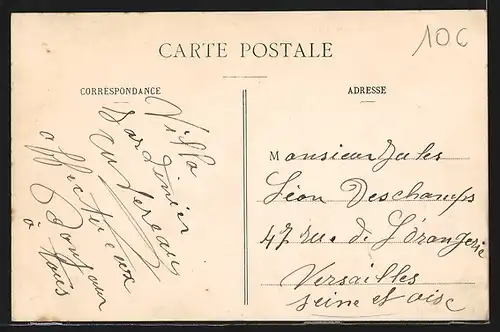 CARTE POSTALE
10C
CORRESPONDANCE
ADRESSE
Villa
Jardinier
affectueux
Bonjour
à tous
Monsieur Jules
Léon Deschamps
47 rue de L'orangerie
Versailles
Seine et oise